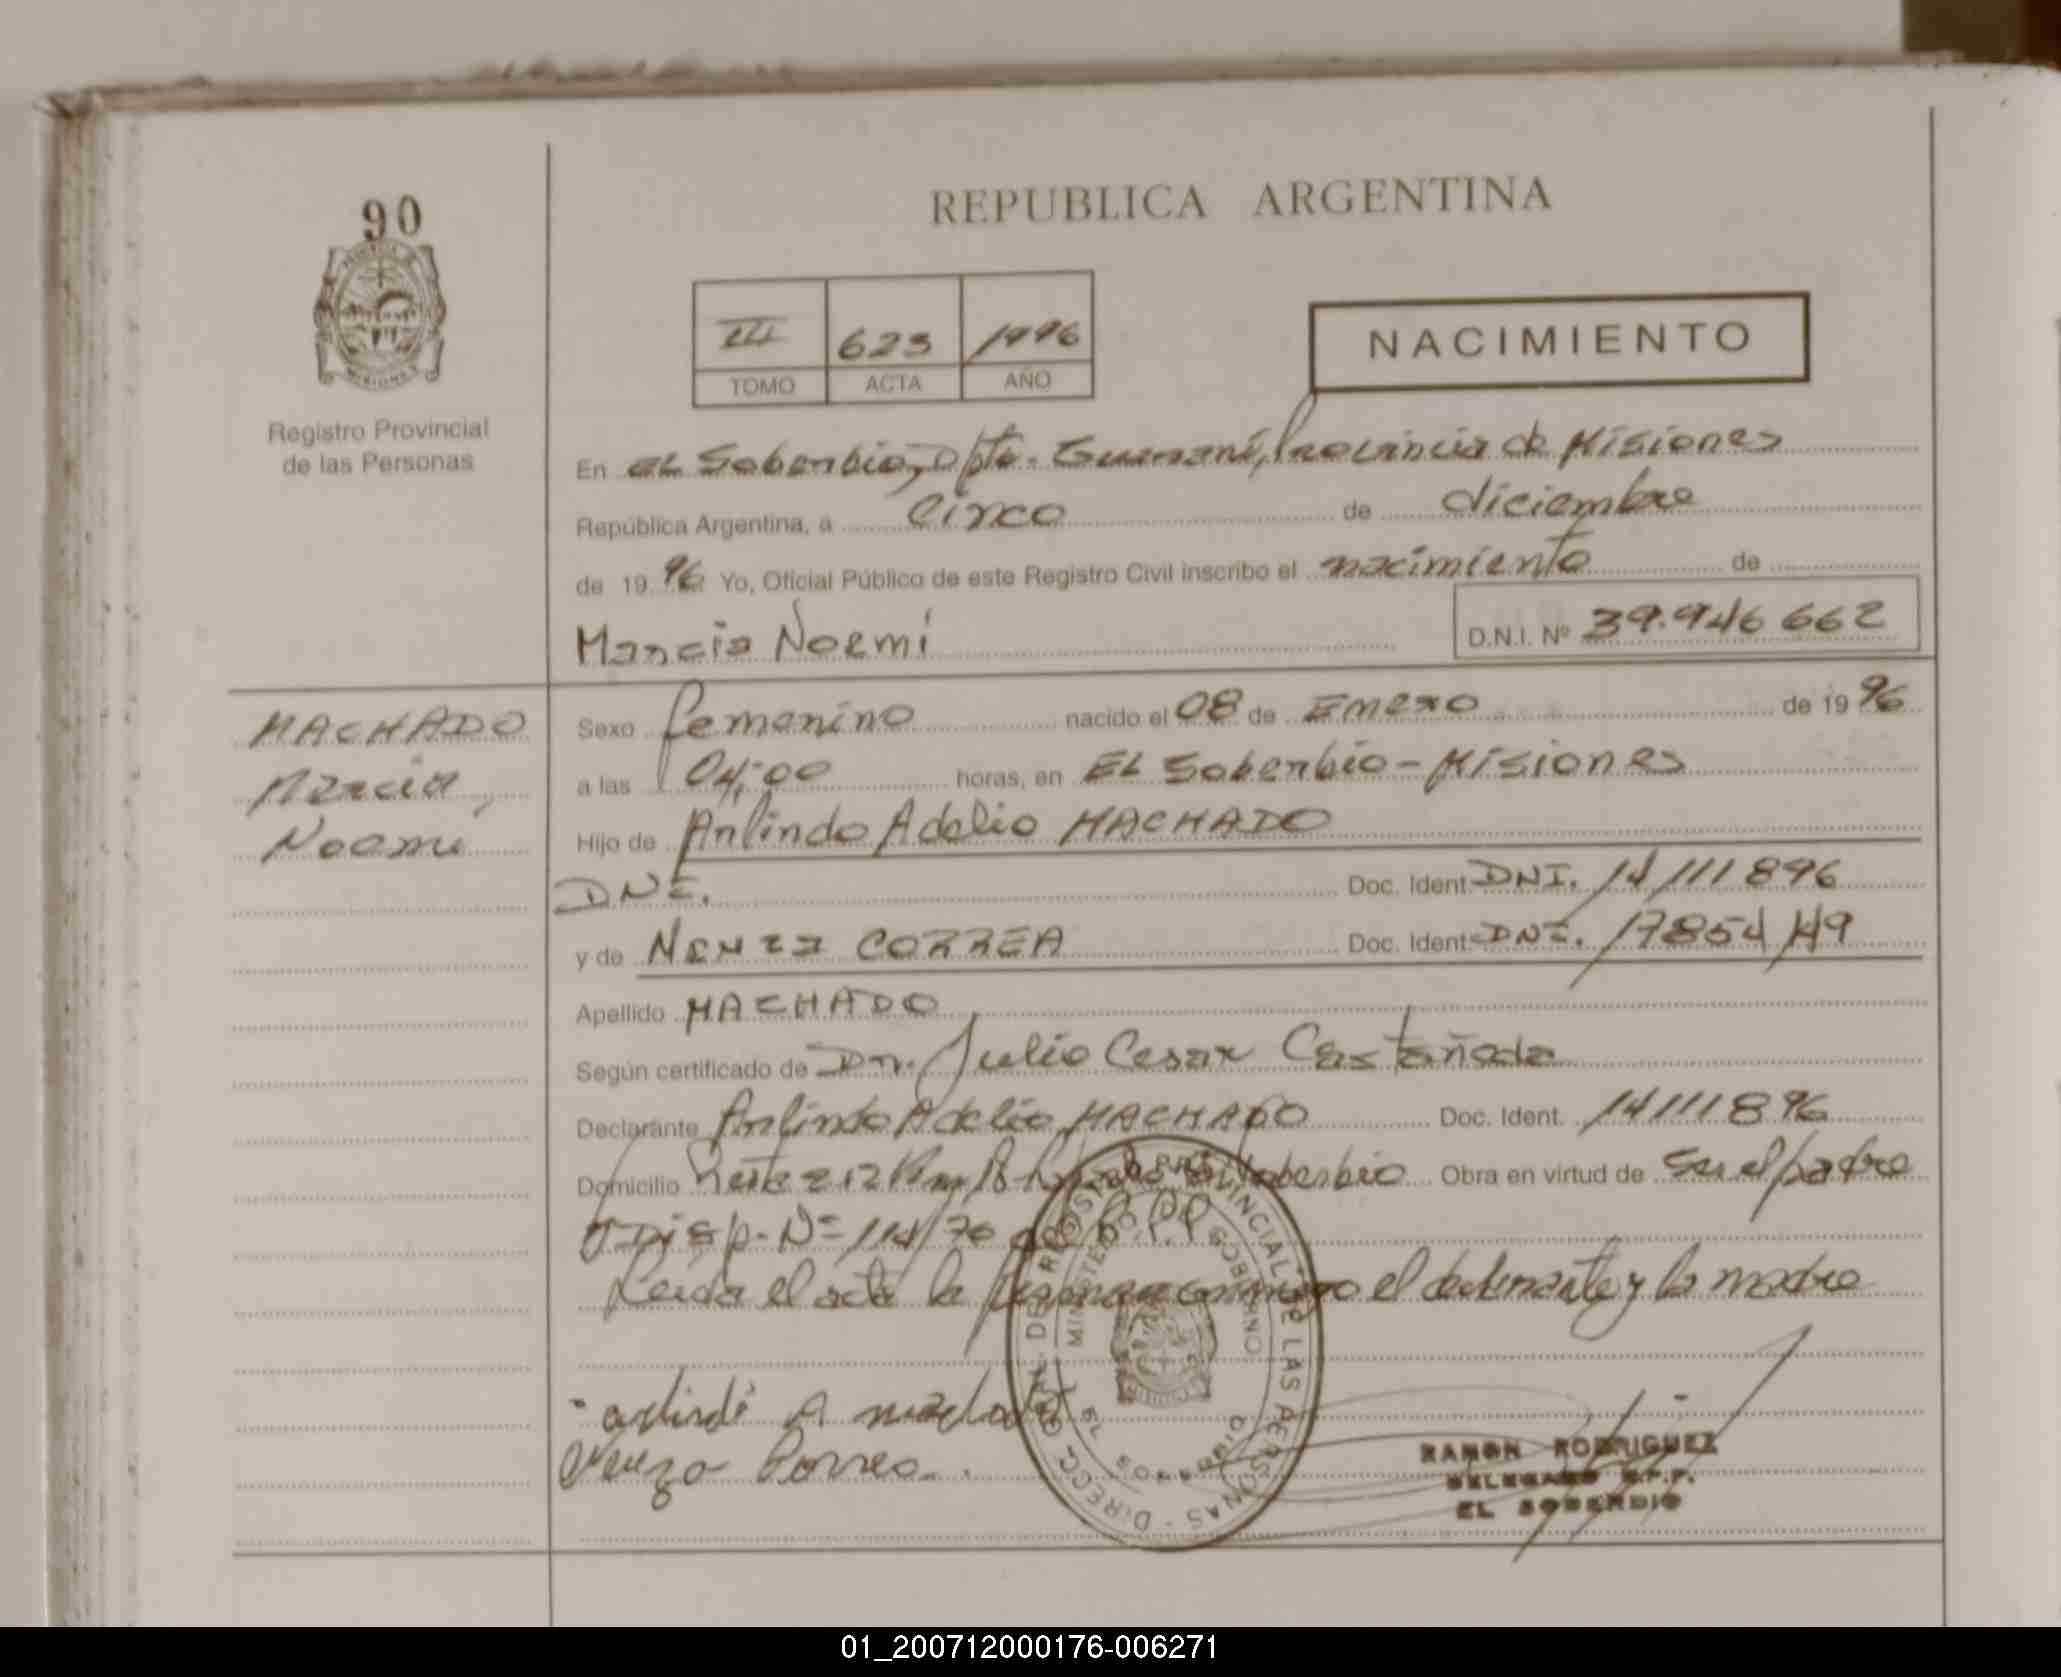 90
REPUBLICA ARGENTINA
III 623 1996
TOMO ACTA AÑO
NACIMIENTO
Registro Provincial
de las Personas
En EL Soberbio, Dpto. Guaraní, Provincia de Misiones
República Argentina, a Cinco de diciembre
de 19 96 Yo, Oficial Público de este Registro Civil inscribo el nacimiento de
Marcia Noemí D.N.I. Nº 39.946 662
MACHADO
Marcia,
Noemi
Sexo femenino nacido el 08 de Enero de 19 96
a las 04:00 horas, en EL Soberbio - Misiones
Hijo de Arlindo Adelio MACHADO
DNI. Doc. Ident. DNI. 14111896
y de CORREA Doc. Ident. DNI. 17854149
Apellido MACHADO
Según certificado de Dr. Julio Cesar Castañeda
Declarante Arlindo Adelio MACHADO Doc. Ident. 14111896
Domicilio Ruta 2 12 Km Soberbio Obra en virtud de ser el padre
y Disp. Nº 114/70 del R.P.P.
Leida el acta la firman conmigo el declarante y la madre
MINISTERIO DE GOBIERNO
DIRECC. GRAL. DE REGISTRO PROVINCIAL DE LAS PERSONAS
EL SOBERBIO
Correa
RAMON RODRIGUEZ
DELEGADO R.P.P.
EL SOBERBIO
01_200712000176-006271